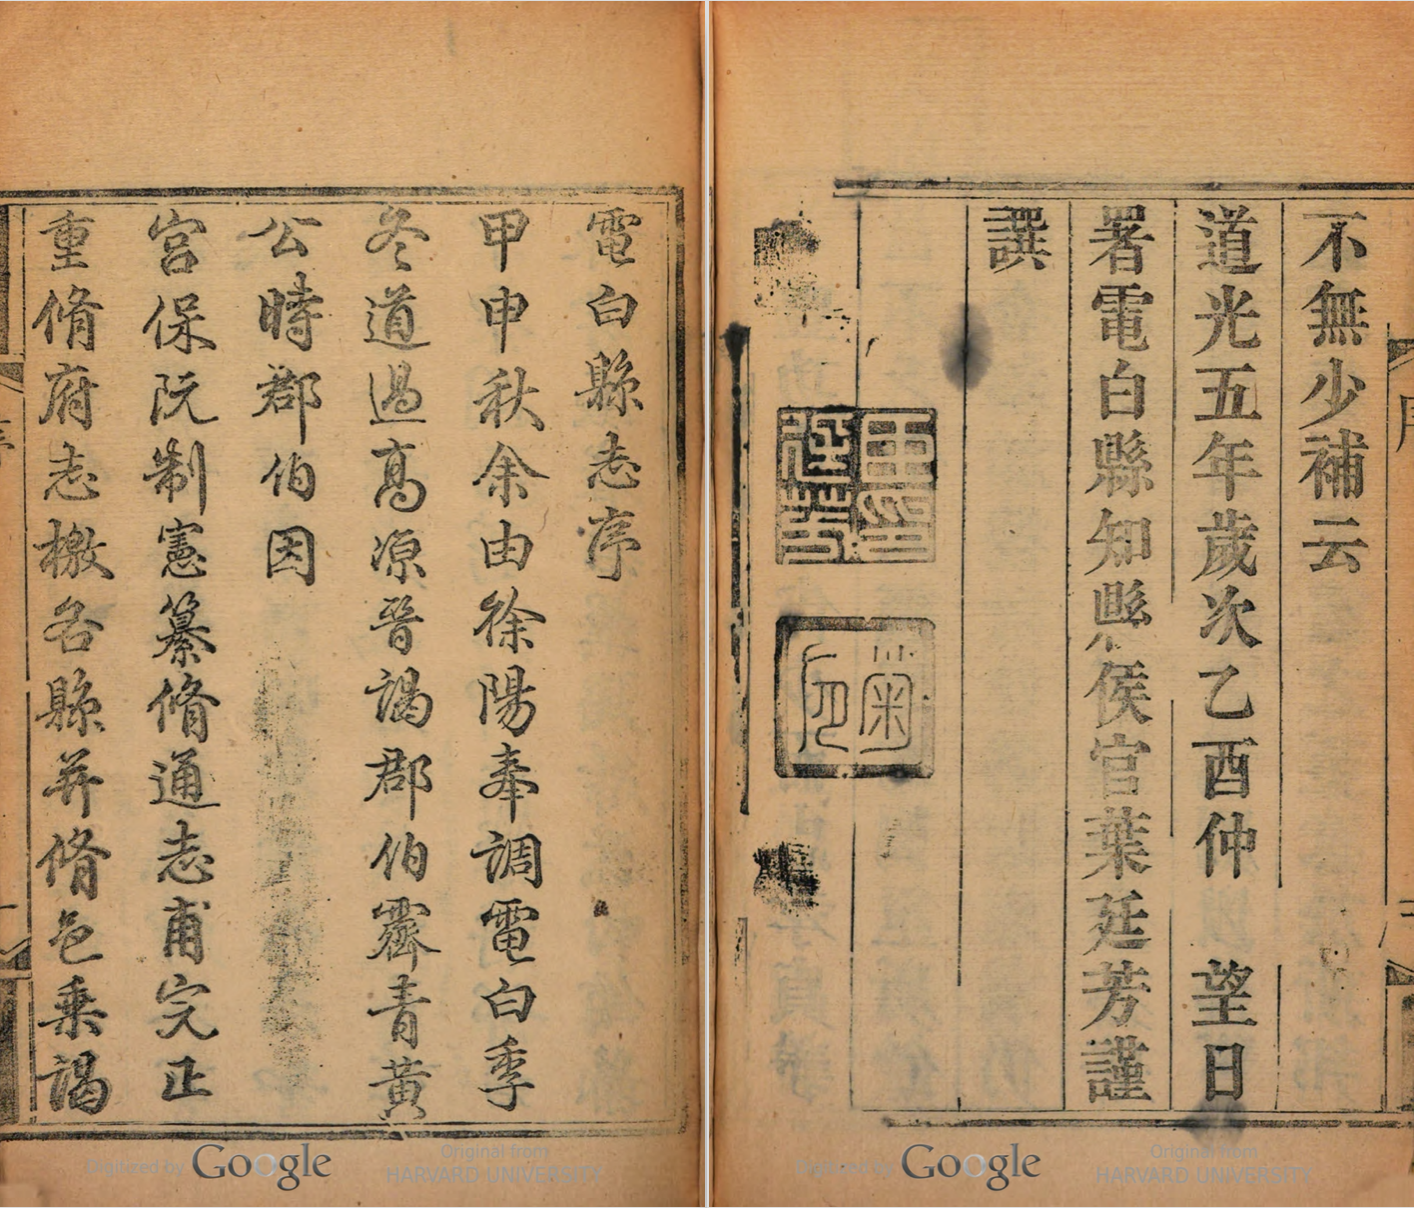 不無少補云
道光五年歲次乙酉仲 望日
署電白縣知縣侯官葉廷芳謹
譔
電白縣志序
甲申秋余由徐陽奉調電白季
冬道過高涼晉謁郡伯霽青黃
公時郡伯因
宮保阮制憲纂脩通志甫完正
重脩府志檄各縣并脩邑乘謁
Digitized by Google
Original from
HARVARD UNIVERSITY
Digitized by Google
Original from
HARVARD UNIVERSITY